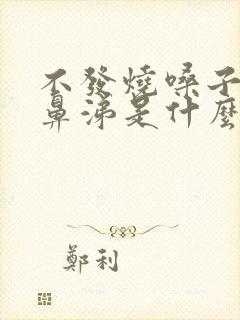 不發燒嗓子
鼻涕是什麼
鄭利